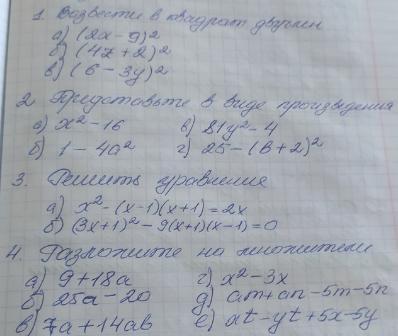 1. Возвести в квадрат двучлен
а) (2x - 9)²
б) (4z + 2)²
в) (6 - 3y)²
2 Представьте в виде произведения
а) x² - 16 в) 81y² - 4
б) 1 - 4a² г) 25 - (b + 2)²
3. Решить уравнения
а) x² - (x - 1)(x + 1) = 2x
б) (3x + 1)² - 9(x + 1)(x - 1) = 0
4. Разложите на множители
а) 9 + 18a г) x² - 3x
б) 25a - 20 д) am + an - 5m - 5n
в) 7a + 14ab е) xt - yt + 5x - 5y